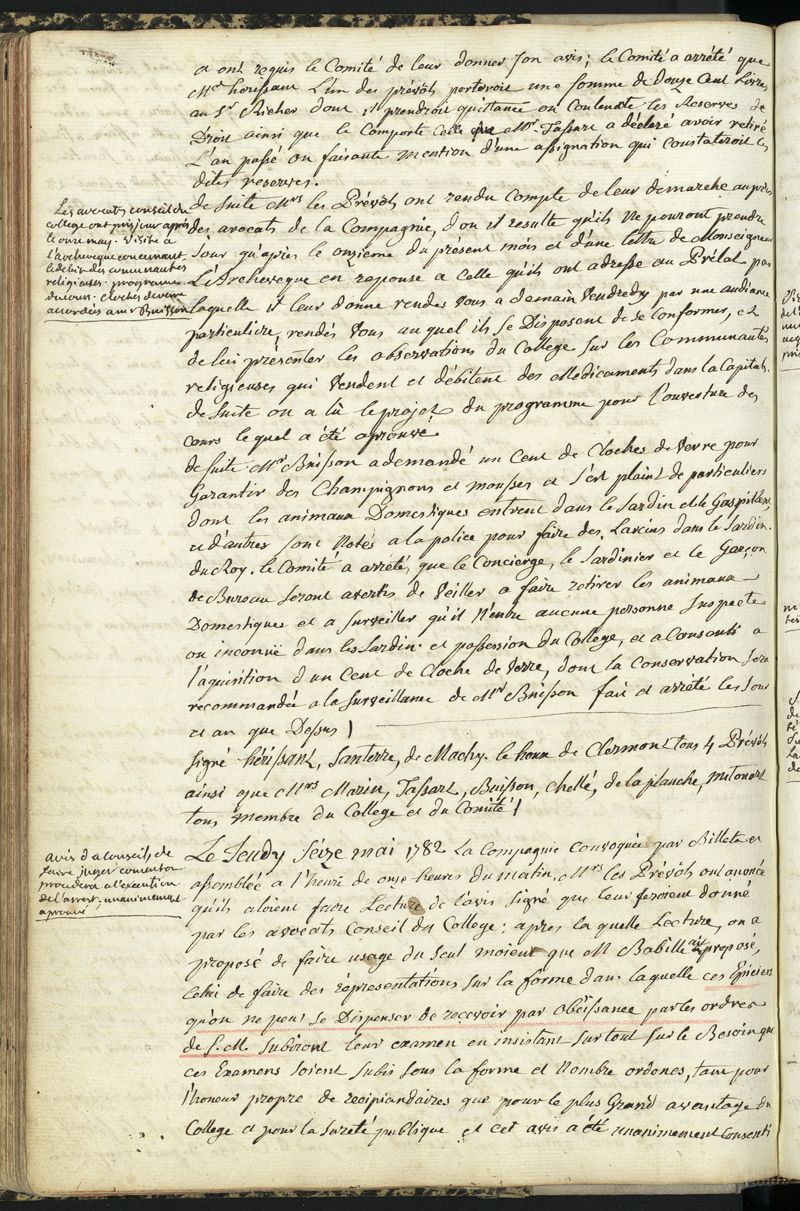 a ont requis le Comité de leur donner son avis; le Comité a arrété que
Mr herissant L'un des prévôts porteroit une somme de Douze Cent Livres
au Sr Richer dont il prendroit quittance on Contenate les Reserves de
Droit ainsi que le Comporte Celle que Mr. Tassart a déclaré avoir retiré
L'an passé on faisante mention d'une assignation qui Constateroit les
dites reserves.
de suite Mrs les Prévôts ont rendu Compte de leur demarche auprès
des avocats de la Compagnie, d'ou il resulte qu'ils ne pouront prendre
Jour qu'après le onzieme du présent mois et d'une lettre de Monseigneur
L'Archeveque en reponse a celle qu'ils ont adressé au Prélat par
laquelle il leur donne rendés Vous a demain Vendredy par une audiance
particuliere, rendés Vous auquel ils se Disposent de se conformer, et
de lui présenter les observations du College sur les Communautés
religieuses qui Vendent et débitent des Medicaments dans la Capitale.
de suite on a lû le projet du programme pour l'ouverture des
cours lequel a été aprouvé
de suite Mr Buisson a demandé un Cent de Cloches de Verre pour
Garantir des Champignons et mousses et s'est plaint de particuliers
dont les animaux Domestiques entrent dans le Jardin et le Gaspillent,
et d'autres sont Notés a la police pour faire des Larcins dans le Jardin
du Roy. le Comité a arrété que le Concierge, le Jardinier et le Garçon
de Bureau seront avertis de Veiller a faire retirer les animaux
Domestiques et a surveiller qu'il N'entre aucune personne Suspecte
ou inconnue dans les Jardin et possession du College, et a Consenti a
l'aquisition d'un Cent de Cloche de Verre, dont la Conservation sera
recommandée a la surveillance de Mr Buisson fait et arrété les Jour
et an que Dessus
signé hérissant, Santerre, de Machy, le houx de Clermont tous 4 Prévôts
ainsi que Mrs Marin, Tassart, Buisson, Chellé, de la planche, Mitouart
tous membre du College et du Comité
Les avocats conseil du
college ont pris jour après
le onze may. Visite a
l'archeveque concernant
le debit des communautes
religieuses. programme
du cours. cloches de verre
accordés a mr Buisson
Le Jeudy Seize mai 1782 La Compagnie convoquée par Billets et
assemblée a l'heure de onze heures du matin, Mrs les Prévôts ont anoncé
qu'ils aloient faire Lecture de l'avis signé que leur feroient donné
par les avocats Conseil du College: apres la quelle Lecture, on a
proposé de faire usage du seul moïen que M Babille ait proposé,
Celui de faire des répresentations sur la forme dans laquelle ces Epiciers
qu'on ne peut se Dispenser de recevoir par Obéissance par les ordres
de S. M. subiront leur examen en insistant sur tout sur le Besoin que
ces Examens soient subis sous la forme et Nombre ordonés, tant pour
l'honneur propre de recipiandaires que pour le plus Grand avantage du
College et pour la sureté publique et cet avis a été unanimement Consenti
avis d a conseils de
faire juger
procedera a l'execution
de l'arrest; unanimement
aprouvé